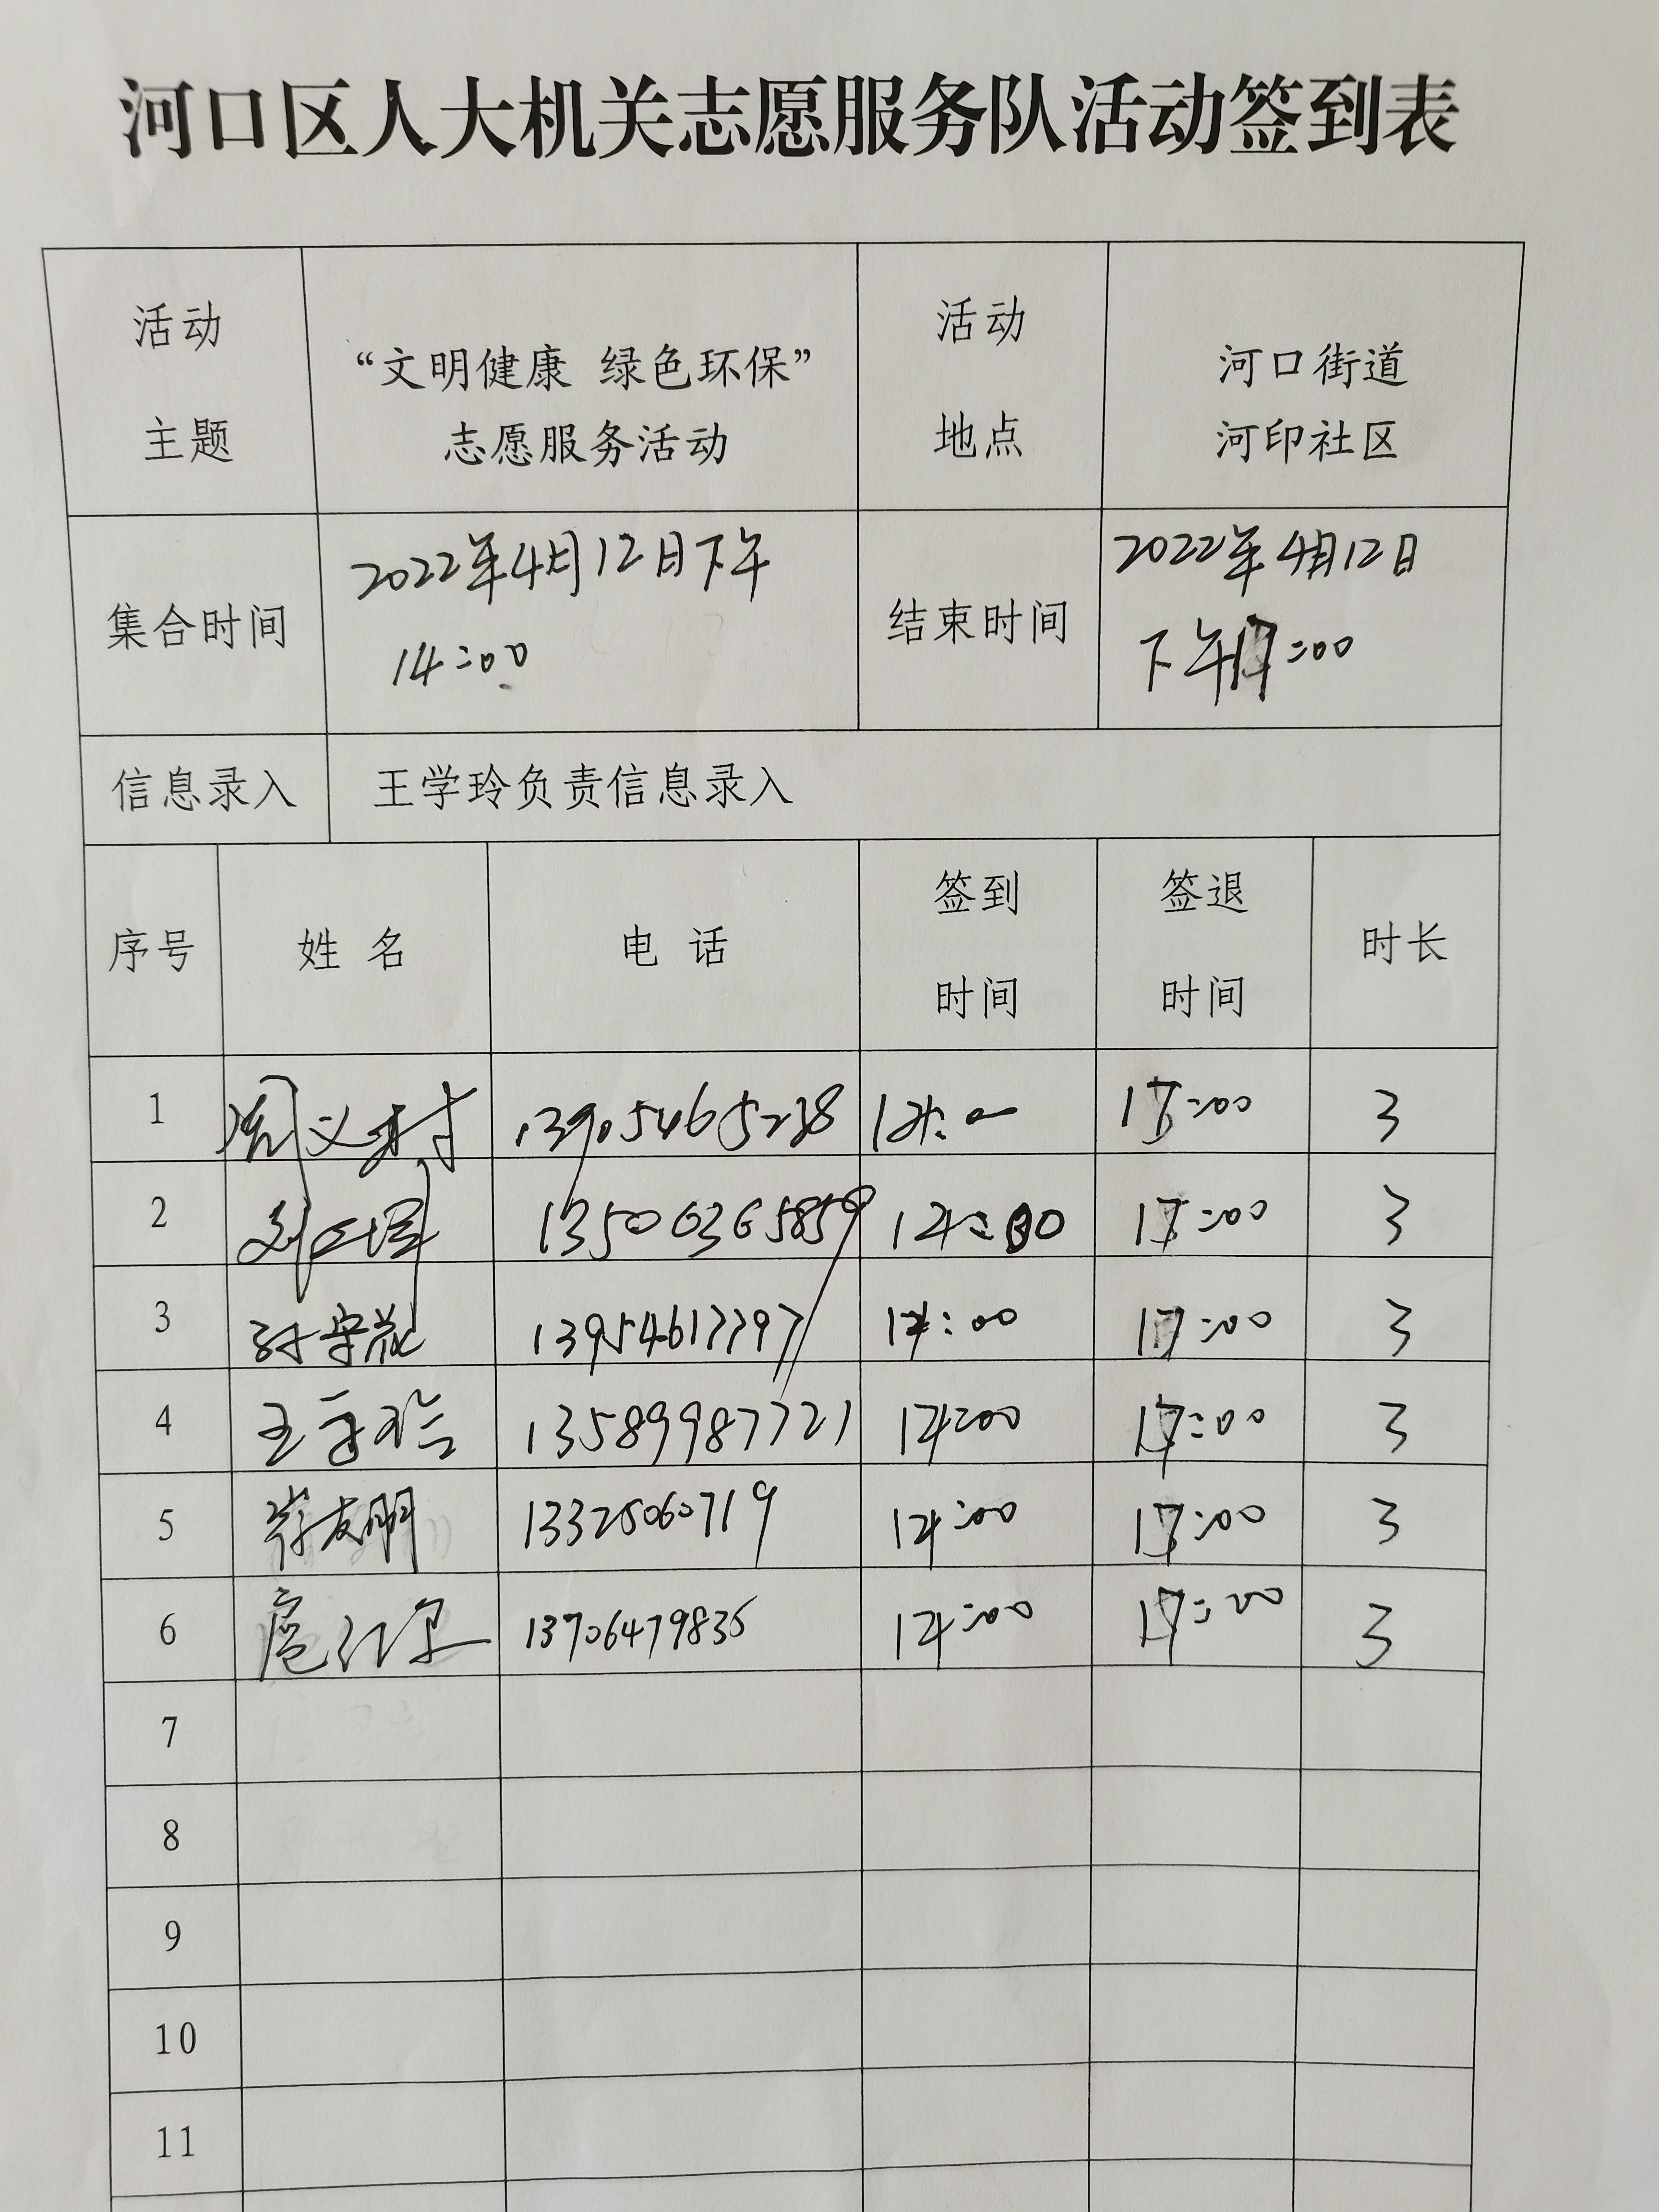 河口区人大机关志愿服务队活动签到表
活动
主题
“文明健康 绿色环保”
志愿服务活动
活动
地点
河口街道
河印社区
集合时间
2022年4月12日下午
14:00
结束时间
2022年4月12日
下午17:00
信息录入
王学玲负责信息录入
序号
姓 名
电 话
签到
时间
签退
时间
时长
1
13905465238
17:00
3
2
13506365859
14:00
17:00
3
3
13954617797
14:00
17:00
3
4 王学玲 13589987721 14:00 17:00 3
5 崔友朋 13325060719 14:00 17:00 3
6
13706479835
14:00
17:00
3
7
8
9
10
11